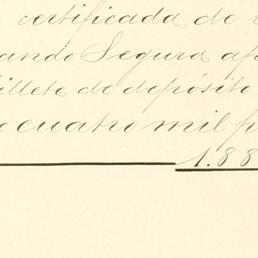 certificada de
ando Segura
illete de depósito
cuatro mil
1.88